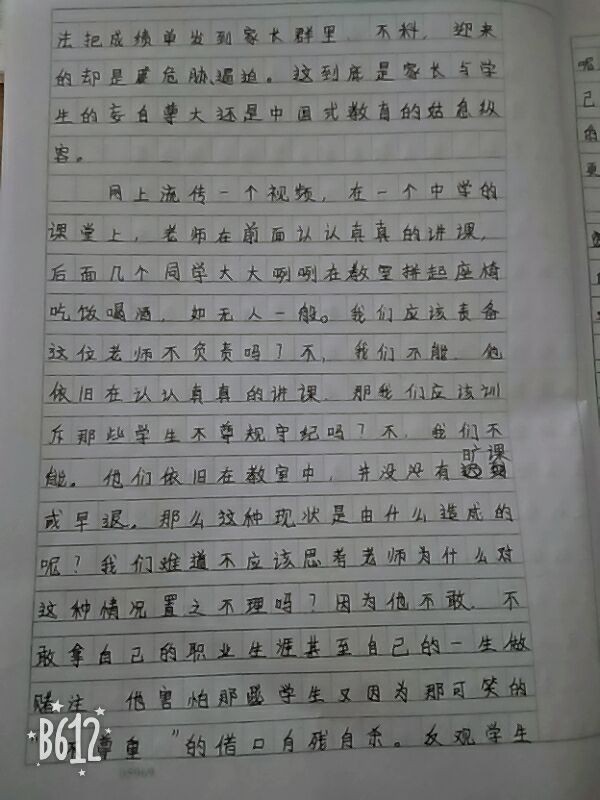 法把成绩单发到家长群里，不料，迎来
的却是威危胁逼迫。这到底是家长与学
生的妄自尊大还是中国式教育的姑息纵
容。
网上流传一个视频，在一个中学的
课堂上，老师在前面认认真真的讲课，
后面几个同学大大咧咧在教室拼起座椅
吃饭喝酒，如无人一般。我们应该责备
这位老师不负责吗？不，我们不能，他
依旧在认认真真的讲课，那我们应该训
斥那些学生不尊规守纪吗？不，我们不
能。他们依旧在教室中，并没没有旷课
或早退。那么这种现状是由什么造成的
呢？我们难道不应该思考老师为什么对
这种情况置之不理吗？因为他不敢，不
敢拿自己的职业生涯甚至自己的一生做
赌注，他害怕那些学生又因为那可笑的
尊重”的借口自残自杀。反观学生
呢
己
的
更
B612